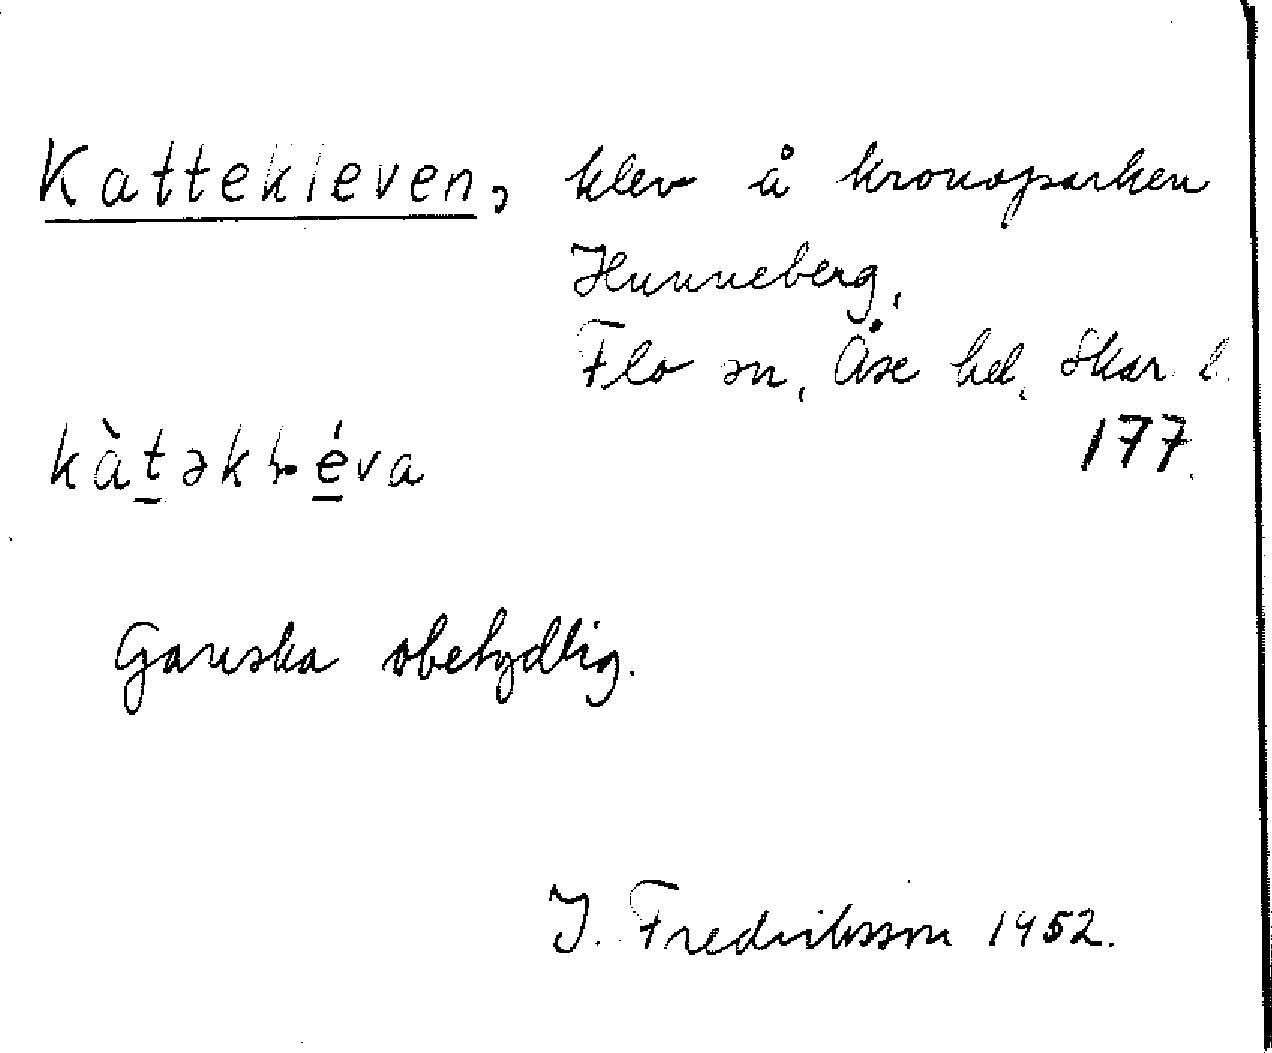 Kattekleven, klev å kronoparken
Hunneberg,
Flo sn, Åse hd, Skar. l.
177.
Ganska obetydlig.
J. Fredriksson 1952.